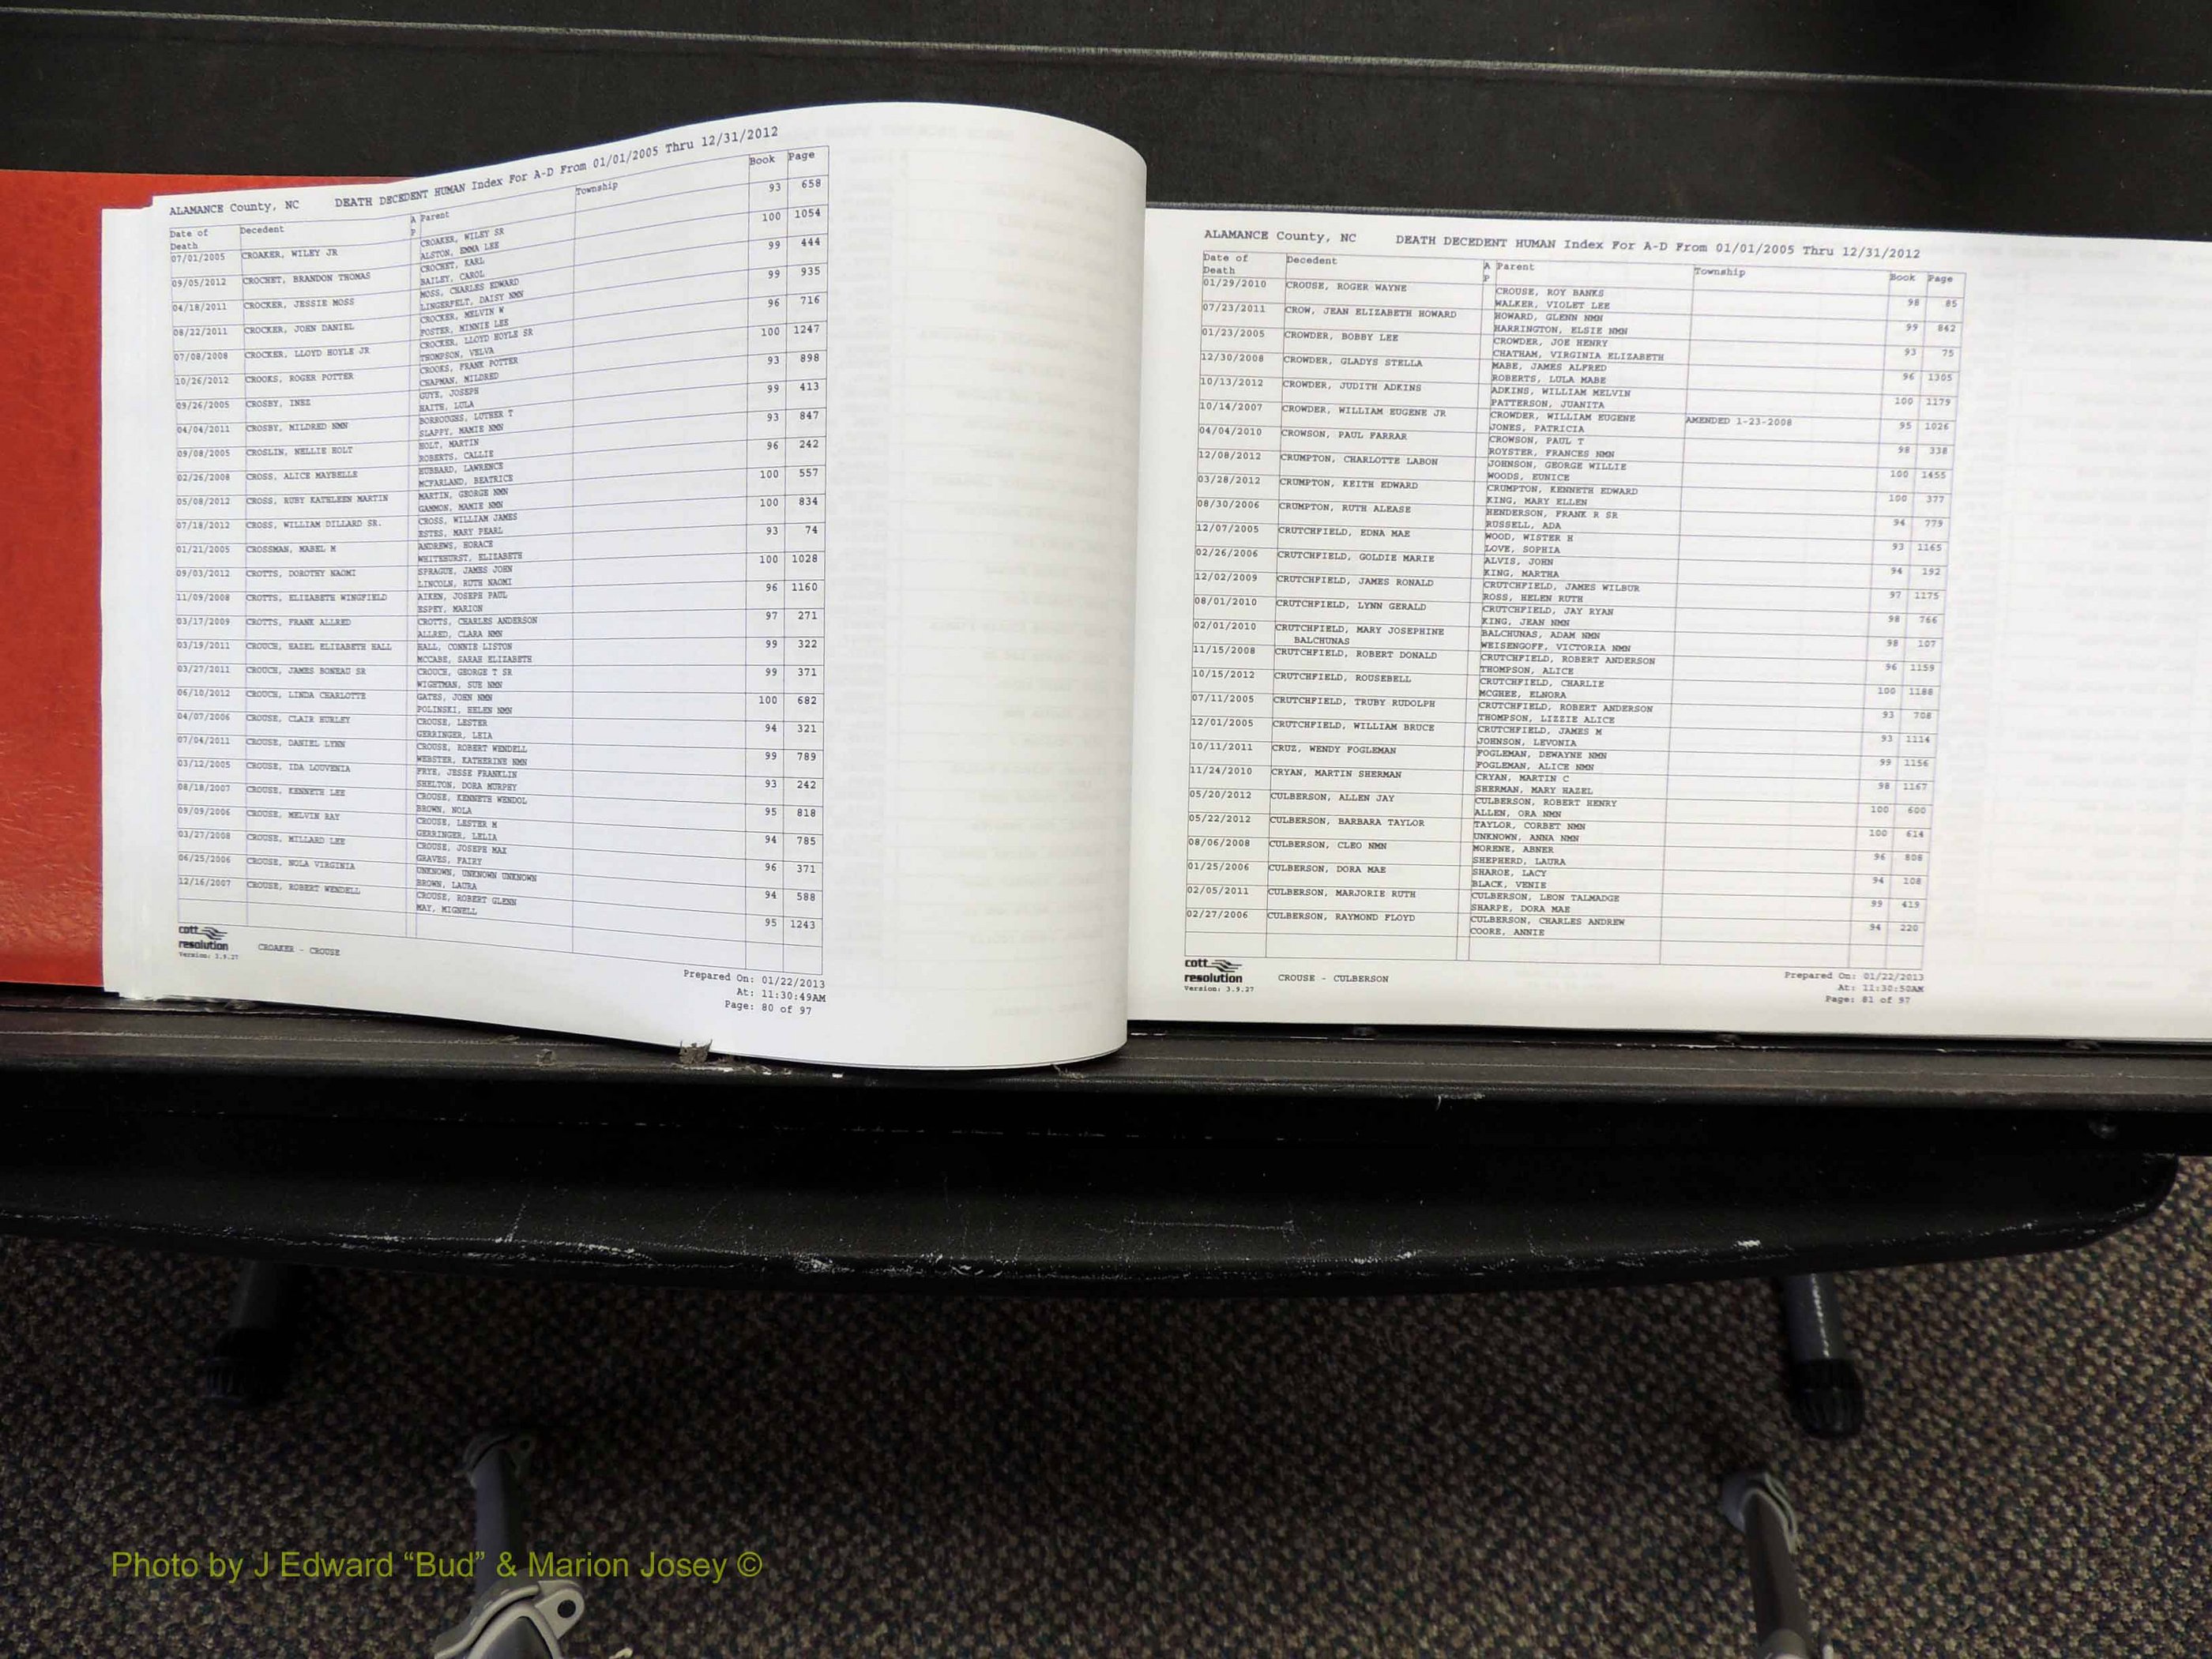 ALAMANCE County, NC DEATH DECEDENT HUMAN Index For A-D From 01/01/2005 Thru 12/31/2012
Date of Death Decedent A P Parent Township Book Page
07/01/2005 CROAKER, WILEY JR CROAKER, WILEY SR 93 658
ALSTON, EMMA LEE
09/05/2012 CROCHET, BRANDON THOMAS CROCHET, KARL 100 1054
BAILEY, CAROL
04/18/2011 CROCKER, JESSIE MOSS MOSS, CHARLES EDWARD 99 444
LINGERFELT, DAISY NMN
08/22/2011 CROCKER, JOHN DANIEL CROCKER, MELVIN W 99 935
FOSTER, MINNIE LEE
07/08/2008 CROCKER, LLOYD HOYLE JR CROCKER, LLOYD HOYLE SR 96 716
THOMPSON, VELVA
10/26/2012 CROOKS, ROGER POTTER CROOKS, FRANK POTTER 100 1247
CHAPMAN, MILDRED
09/26/2005 CROSBY, INEZ GUYE, JOSEPH 93 898
HAITH, LULA
04/04/2011 CROSBY, MILDRED NMN BORROUGHS, LUTHER T 99 413
SLAPPY, MAMIE NMN
09/08/2005 CROSLIN, NELLIE HOLT HOLT, MARTIN 93 847
ROBERTS, CALLIE
02/26/2008 CROSS, ALICE MAYBELLE HUBBARD, LAWRENCE 96 242
MCFARLAND, BEATRICE
05/08/2012 CROSS, RUBY KATHLEEN MARTIN MARTIN, GEORGE NMN 100 557
GAMMON, MAMIE NMN
07/18/2012 CROSS, WILLIAM DILLARD SR. CROSS, WILLIAM JAMES 100 834
ESTES, MARY PEARL
01/21/2005 CROSSMAN, MABEL M ANDREWS, HORACE 93 74
WHITEHURST, ELIZABETH
09/03/2012 CROTTS, DOROTHY NAOMI SPRAGUE, JAMES JOHN 100 1028
LINCOLN, RUTH NAOMI
11/09/2008 CROTTS, ELIZABETH WINGFIELD AIKEN, JOSEPH PAUL 96 1160
ESPEY, MARION
03/17/2009 CROTTS, FRANK ALLRED CROTTS, CHARLES ANDERSON 97 271
ALLRED, CLARA NMN
03/19/2011 CROUCH, HAZEL ELIZABETH HALL HALL, CONNIE LISTON 99 322
MCCABE, SARAH ELIZABETH
03/27/2011 CROUCH, JAMES BONEAU SR CROUCH, GEORGE T SR 99 371
WIGHTMAN, SUE NMN
06/10/2012 CROUCH, LINDA CHARLOTTE GATES, JOHN NMN 100 682
POLINSKI, HELEN NMN
04/07/2006 CROUSE, CLAIR HURLEY CROUSE, LESTER 94 321
GERRINGER, LEIA
07/04/2011 CROUSE, DANIEL LYNN CROUSE, ROBERT WENDELL 99 789
WEBSTER, KATHERINE NMN
03/12/2005 CROUSE, IDA LOUVENIA FRYE, JESSE FRANKLIN 93 242
SHELTON, DORA MURPHY
08/18/2007 CROUSE, KENNETH LEE CROUSE, KENNETH WENDOL 95 818
BROWN, NOLA
09/09/2006 CROUSE, MELVIN RAY CROUSE, LESTER M 94 785
GERRINGER, LELIA
03/27/2008 CROUSE, MILLARD LEE CROUSE, JOSEPH MAX 96 371
GRAVES, FAIRY
06/25/2006 CROUSE, NOLA VIRGINIA UNKNOWN, UNKNOWN UNKNOWN 94 588
BROWN, LAURA
12/16/2007 CROUSE, ROBERT WENDELL CROUSE, ROBERT GLENN 95 1243
MAY, MIGNELL
cott
resolution CROAKER - CROUSE
Version: 3.9.27
Prepared On: 01/22/2013
At: 11:30:49AM
Page: 80 of 97
ALAMANCE County, NC DEATH DECEDENT HUMAN Index For A-D From 01/01/2005 Thru 12/31/2012
Date of Death Decedent A P Parent Township Book Page
01/29/2010 CROUSE, ROGER WAYNE CROUSE, ROY BANKS 98 85
WALKER, VIOLET LEE
07/23/2011 CROW, JEAN ELIZABETH HOWARD HOWARD, GLENN NMN 99 842
HARRINGTON, ELSIE NMN
01/23/2005 CROWDER, BOBBY LEE CROWDER, JOE HENRY 93 75
CHATHAM, VIRGINIA ELIZABETH
12/30/2008 CROWDER, GLADYS STELLA MABE, JAMES ALFRED 96 1305
ROBERTS, LULA MABE
10/13/2012 CROWDER, JUDITH ADKINS ADKINS, WILLIAM MELVIN 100 1179
PATTERSON, JUANITA
10/14/2007 CROWDER, WILLIAM EUGENE JR CROWDER, WILLIAM EUGENE AMENDED 1-23-2008 95 1026
JONES, PATRICIA
04/04/2010 CROWSON, PAUL FARRAR CROWSON, PAUL T 98 338
ROYSTER, FRANCES NMN
12/08/2012 CRUMPTON, CHARLOTTE LABON JOHNSON, GEORGE WILLIE 100 1455
WOODS, EUNICE
03/28/2012 CRUMPTON, KEITH EDWARD CRUMPTON, KENNETH EDWARD 100 377
KING, MARY ELLEN
08/30/2006 CRUMPTON, RUTH ALEASE HENDERSON, FRANK R SR 94 779
RUSSELL, ADA
12/07/2005 CRUTCHFIELD, EDNA MAE WOOD, WISTER H 93 1165
LOVE, SOPHIA
02/26/2006 CRUTCHFIELD, GOLDIE MARIE ALVIS, JOHN 94 192
KING, MARTHA
12/02/2009 CRUTCHFIELD, JAMES RONALD CRUTCHFIELD, JAMES WILBUR 97 1175
ROSS, HELEN RUTH
08/01/2010 CRUTCHFIELD, LYNN GERALD CRUTCHFIELD, JAY RYAN 98 766
KING, JEAN NMN
02/01/2010 CRUTCHFIELD, MARY JOSEPHINE BALCHUNAS, ADAM NMN 98 107
BALCHUNAS WEISENGOFF, VICTORIA NMN
11/15/2008 CRUTCHFIELD, ROBERT DONALD CRUTCHFIELD, ROBERT ANDERSON 96 1159
THOMPSON, ALICE
10/15/2012 CRUTCHFIELD, ROUSEBELL CRUTCHFIELD, CHARLIE 100 1188
MCGHEE, ELNORA
07/11/2005 CRUTCHFIELD, TRUBY RUDOLPH CRUTCHFIELD, ROBERT ANDERSON 93 708
THOMPSON, LIZZIE ALICE
12/01/2005 CRUTCHFIELD, WILLIAM BRUCE CRUTCHFIELD, JAMES M 93 1114
JOHNSON, LEVONIA
10/11/2011 CRUZ, WENDY FOGLEMAN FOGLEMAN, DEWAYNE NMN 99 1156
FOGLEMAN, ALICE NMN
11/24/2010 CRYAN, MARTIN SHERMAN CRYAN, MARTIN C 98 1167
SHERMAN, MARY HAZEL
05/20/2012 CULBERSON, ALLEN JAY CULBERSON, ROBERT HENRY 100 600
ALLEN, ORA NMN
05/22/2012 CULBERSON, BARBARA TAYLOR TAYLOR, CORBET NMN 100 614
UNKNOWN, ANNA NMN
08/06/2008 CULBERSON, CLEO NMN MORENE, ABNER 96 808
SHEPHERD, LAURA
01/25/2006 CULBERSON, DORA MAE SHAROE, LACY 94 108
BLACK, VENIE
02/05/2011 CULBERSON, MARJORIE RUTH CULBERSON, LEON TALMADGE 99 419
SHARPE, DORA MAE
02/27/2006 CULBERSON, RAYMOND FLOYD CULBERSON, CHARLES ANDREW 94 220
COORE, ANNIE
cott
resolution CROUSE - CULBERSON
Version: 3.9.27
Prepared On: 01/22/2013
At: 11:30:50AM
Page: 81 of 97
Photo by J Edward “Bud” & Marion Josey ©